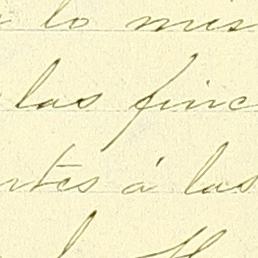 lo mis
las finc
rtes á las